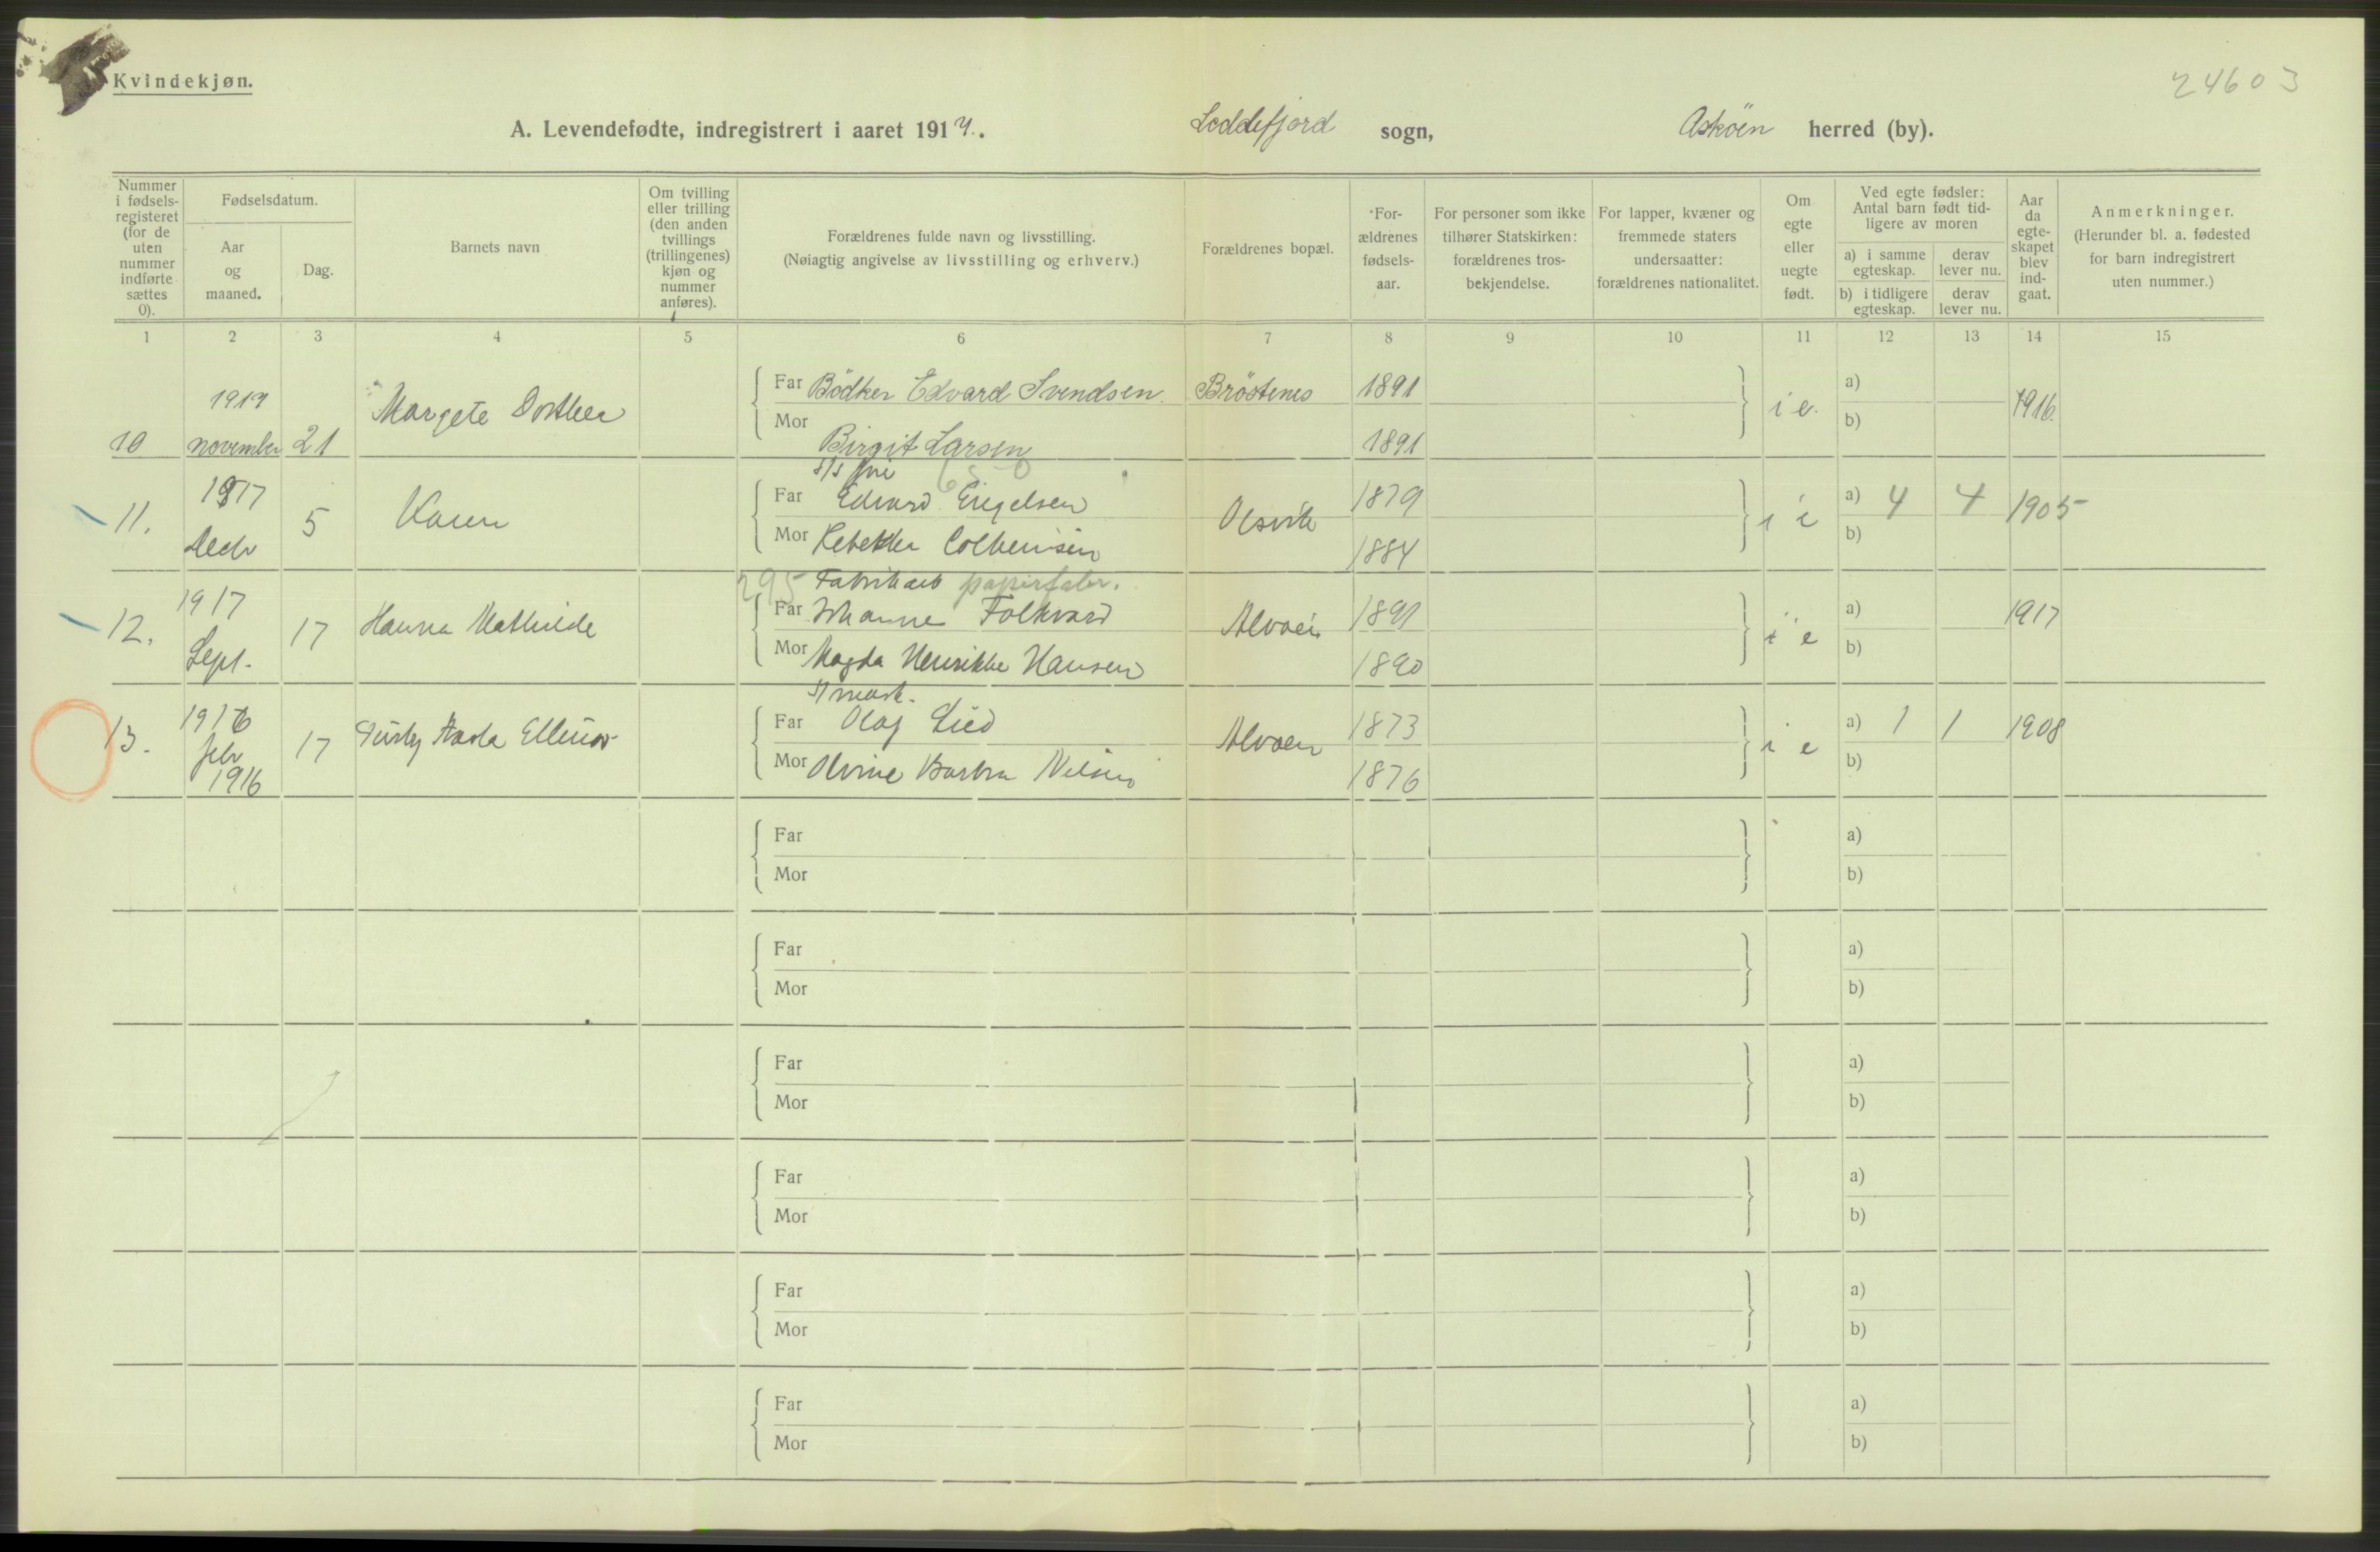 Kvindekjøn.
24603
A. Levendefødte, indregistrert i aaret 1917. Loddefjord sogn, Askøen herred (by).
Nummer i fødselsregisteret (for de uten nummer indførte sættes 0).
Fødselsdatum.
Aar og maaned.
Dag.
Barnets navn
Om tvilling eller trilling (den anden tvillings (trillingenes) kjøn og nummer anføres).
Forældrenes fulde navn og livsstilling.
(Nøiagtig angivelse av livsstilling og erhverv.)
Forældrenes bopæl.
Forældrenes fødselsaar.
For personer som ikke tilhører Statskirken: forældrenes trosbekjendelse.
For lapper, kvæner og fremmede staters undersaatter: forældrenes nationalitet.
Om egte eller uegte født.
Ved egte fødsler: Antal barn født tidligere av moren
a) i samme egteskap.
derav lever nu.
b) i tidligere egteskap.
derav lever nu.
Aar da egteskapet blev indgaat.
Anmerkninger.
(Herunder bl. a. fødested for barn indregistrert uten nummer.)
1 2 3 4 5 6 7 8 9 10 11 12 13 14 15
1917
Margete Dorthea
Far Bödker Edvard Svendsen Bröstenes 1891
i e. a) 1916.
Mor b)
10 november 21
Birgit Larsen 1891
650
1917
Far Edvard Engelsen 1879
a) 4 4 1905
11. 5 Karen Olsvik i e
Decb Mor Rebekka 1884
b)
295 Fabrikarb papirfabr.
1917
Far Johannes Folkvard 1891
a) 1917
12. 17 Hanna Mathilde Alvøen i e
Sept. Mor Magda Henrikke Hansen 1890
b)
1916
Far Olaf Lied 1873
a) 1 1 1908
13. febr 17 Alvøen i e
1916
Mor Olvine Barbra Nilsen 1876
b)
Far a)
Mor b)
Far a)
Mor b)
Far a)
Mor b)
Far a)
Mor b)
Far a)
Mor b)
Far a)
Mor b)